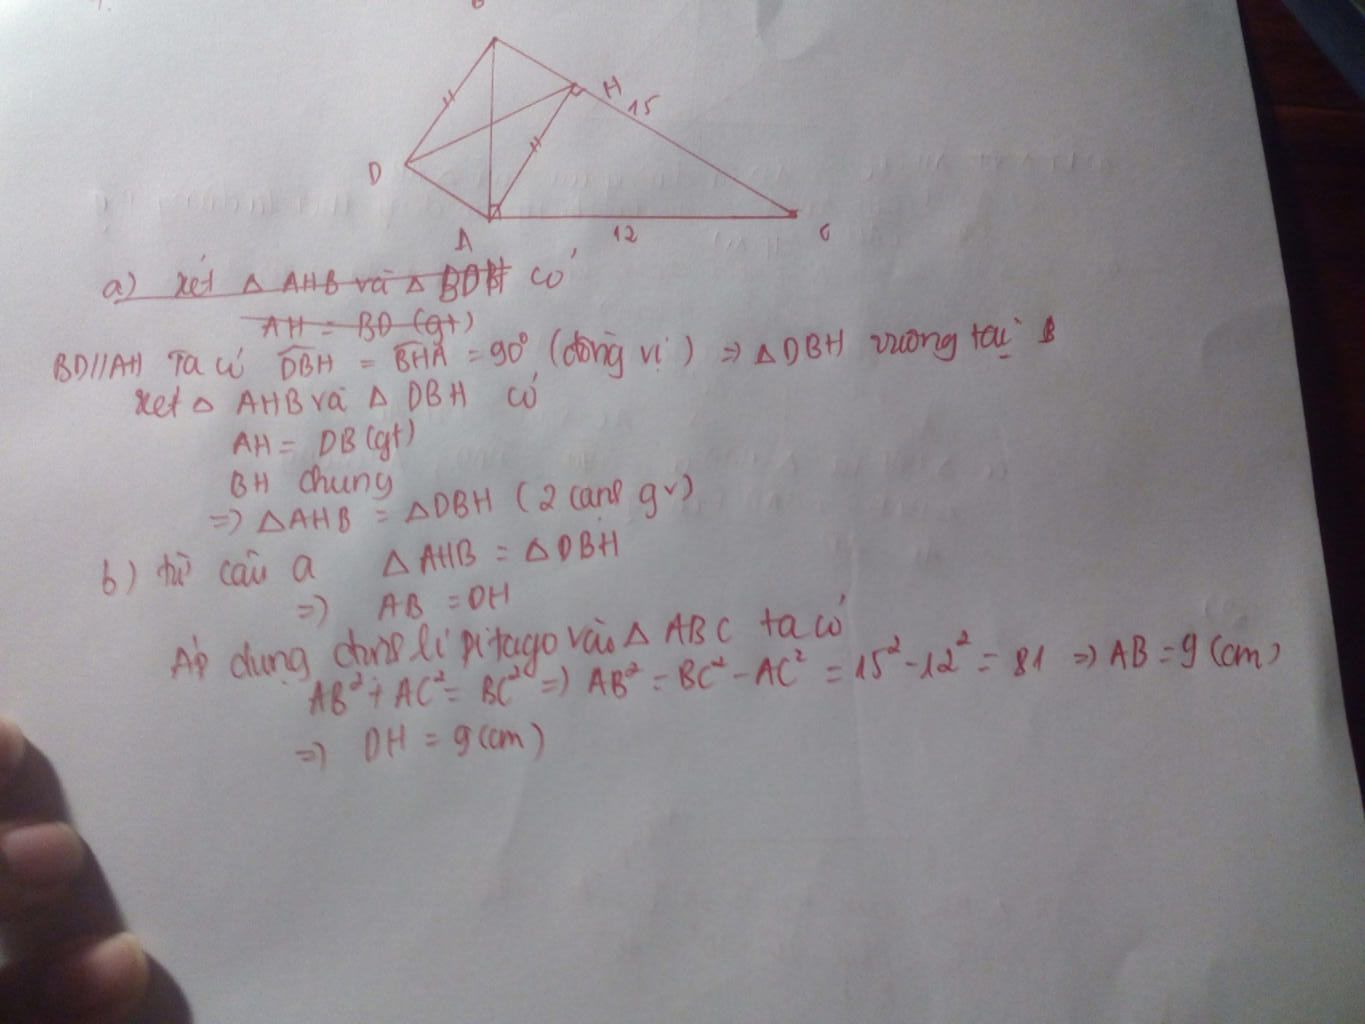 B
H
15
D
A
12
C
a) xét Δ AHB và Δ BDH có
AH = BD (gt)
BD//AH Ta có DBH = BHA = 90° (đồng vị) => ΔDBH vuông tại B
xét Δ AHB và Δ DBH có
AH = DB (gt)
BH chung
=> ΔAHB = ΔDBH (2 cạnh gv)
b) từ câu a ΔAHB = ΔDBH
=> AB = DH
Áp dụng định lí pitago vào Δ ABC ta có
AB² + AC² = BC² => AB² = BC² - AC² = 15² - 12² = 81 => AB = 9 (cm)
=> DH = 9 (cm)